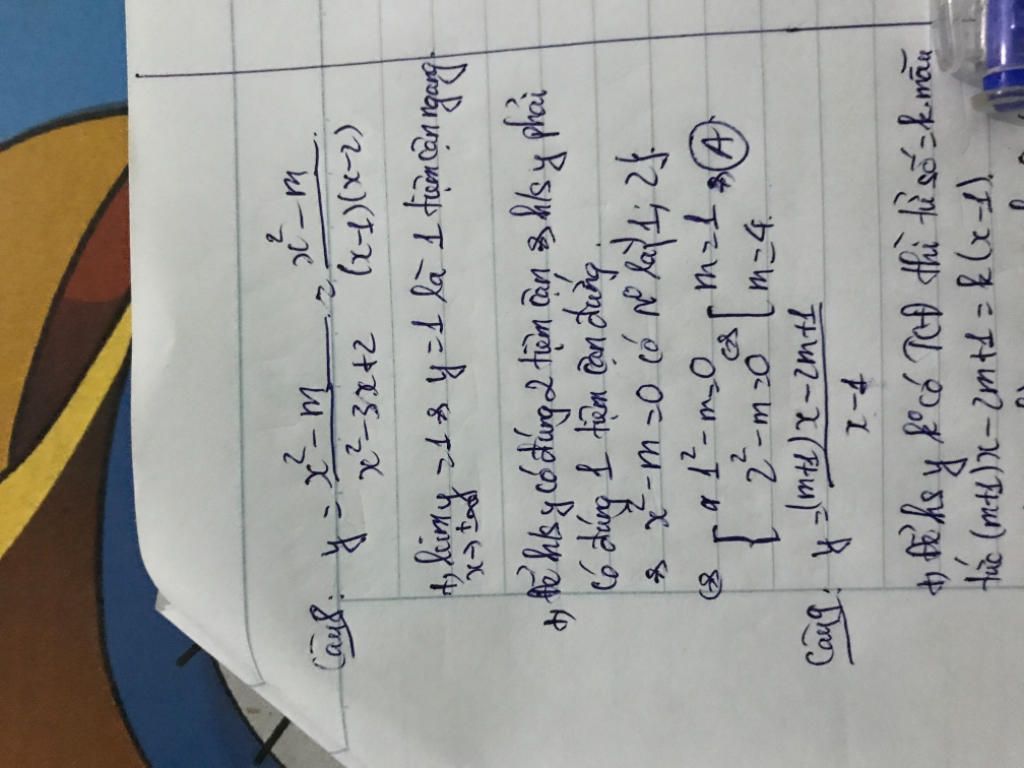 Câu 8: y = x² - m / x² - 3x + 2 = x² - m / (x-1)(x-2)
+, lim y = 1 => y = 1 là 1 tiệm cận ngang
x→±∞
+, Để h/s y có đúng 2 tiệm cận => h/s y phải
có đúng 1 tiệm cận đứng.
=> x² - m = 0 có N° là {1; 2}.
<=> [ 1² - m = 0 <=> [ m = 1 => (A)
2² - m = 0 m = 4.
Câu 9: y = (m+1)x - 2m + 1 / x - 1
+, Để h/s y k° có TCĐ thì tử số = k. mẫu
tức (m+1)x - 2m + 1 = k(x-1).